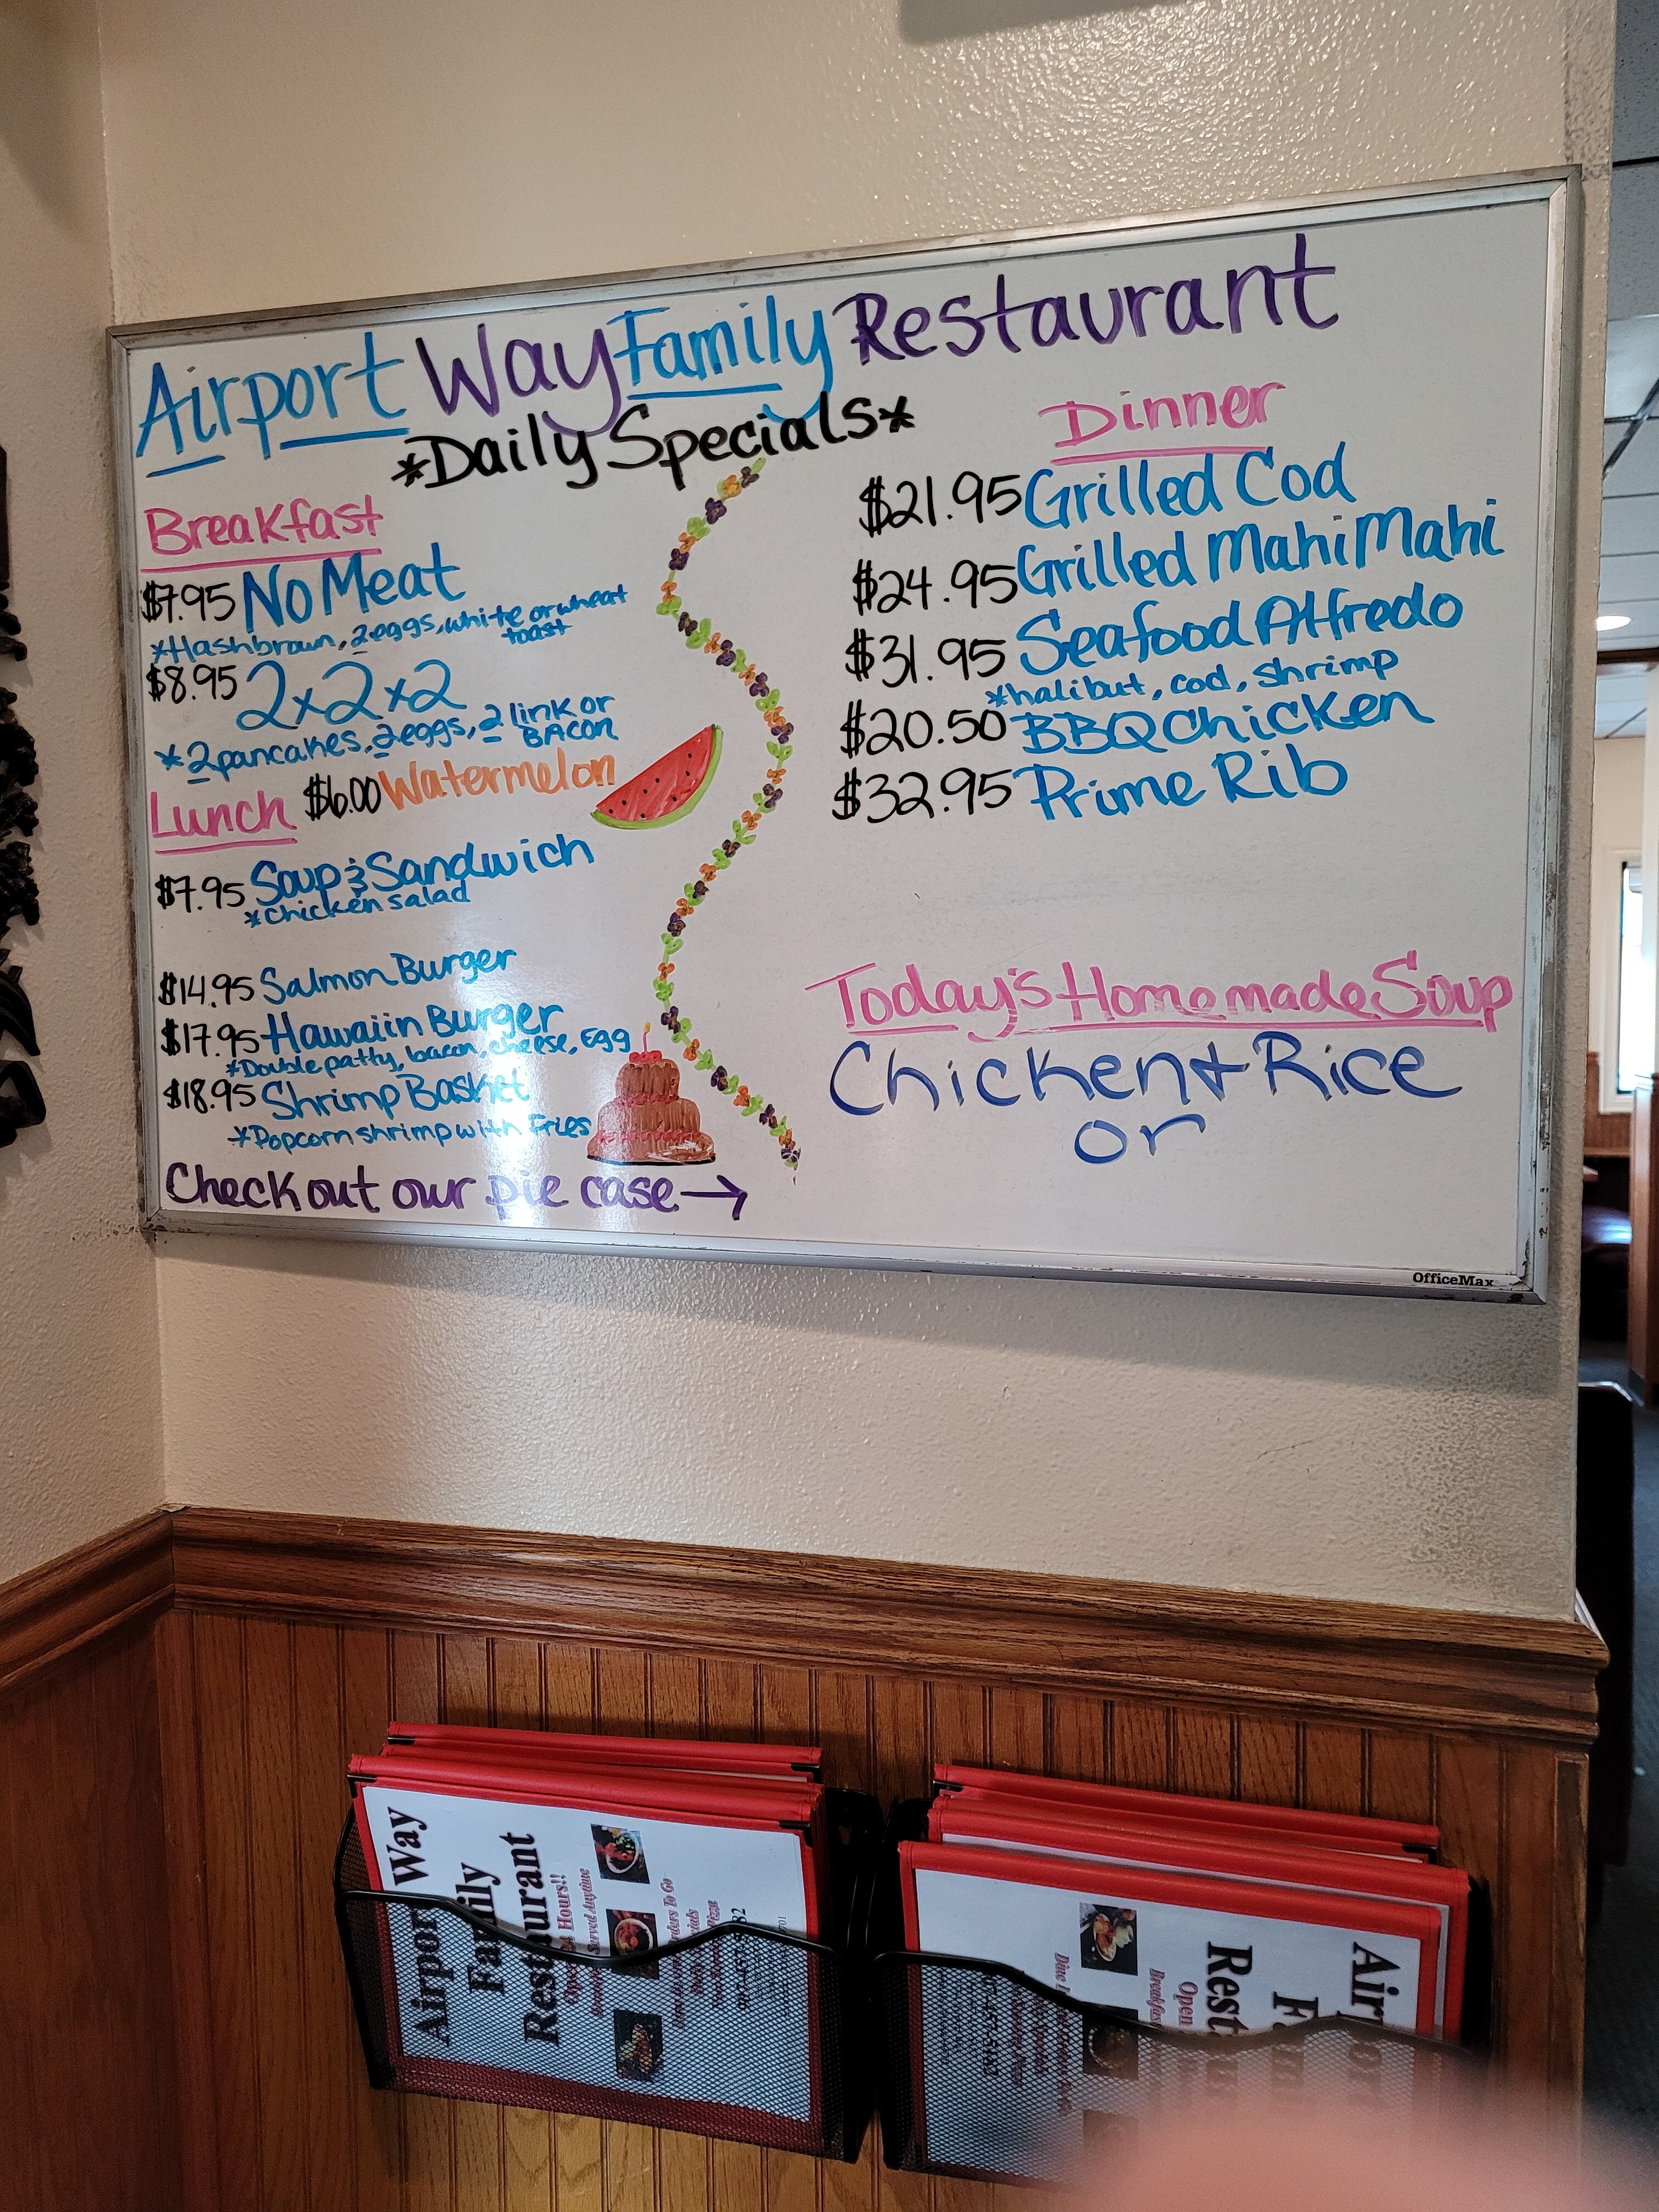 Airport Way Family Restaurant
*Daily Specials*
Breakfast
$7.95 No Meat
*Hashbrown, 2 eggs, white or wheat
toast
$8.95 2x2x2
*2 pancakes, 2 eggs, 2 link or
BACON
Lunch $6.00 Watermelon
$7.95 Soup & Sandwich
*Chicken salad
$14.95 Salmon Burger
$17.95 Hawaiin Burger
*Double patty, bacon, cheese, Egg
$18.95 Shrimp Basket
*Popcorn shrimp with Fries
Check out our pie case →
Dinner
$21.95 Grilled Cod
$24.95 Grilled Mahi Mahi
$31.95 Seafood Alfredo
*halibut, cod, shrimp
$20.50 BBQ Chicken
$32.95 Prime Rib
Today's Homemade Soup
Chicken & Rice
or
OfficeMax
Airport Way
Family
Restaurant
Hours!!
Served Anytime
To Go
Air
Rest
Open
Breakfast
Dine